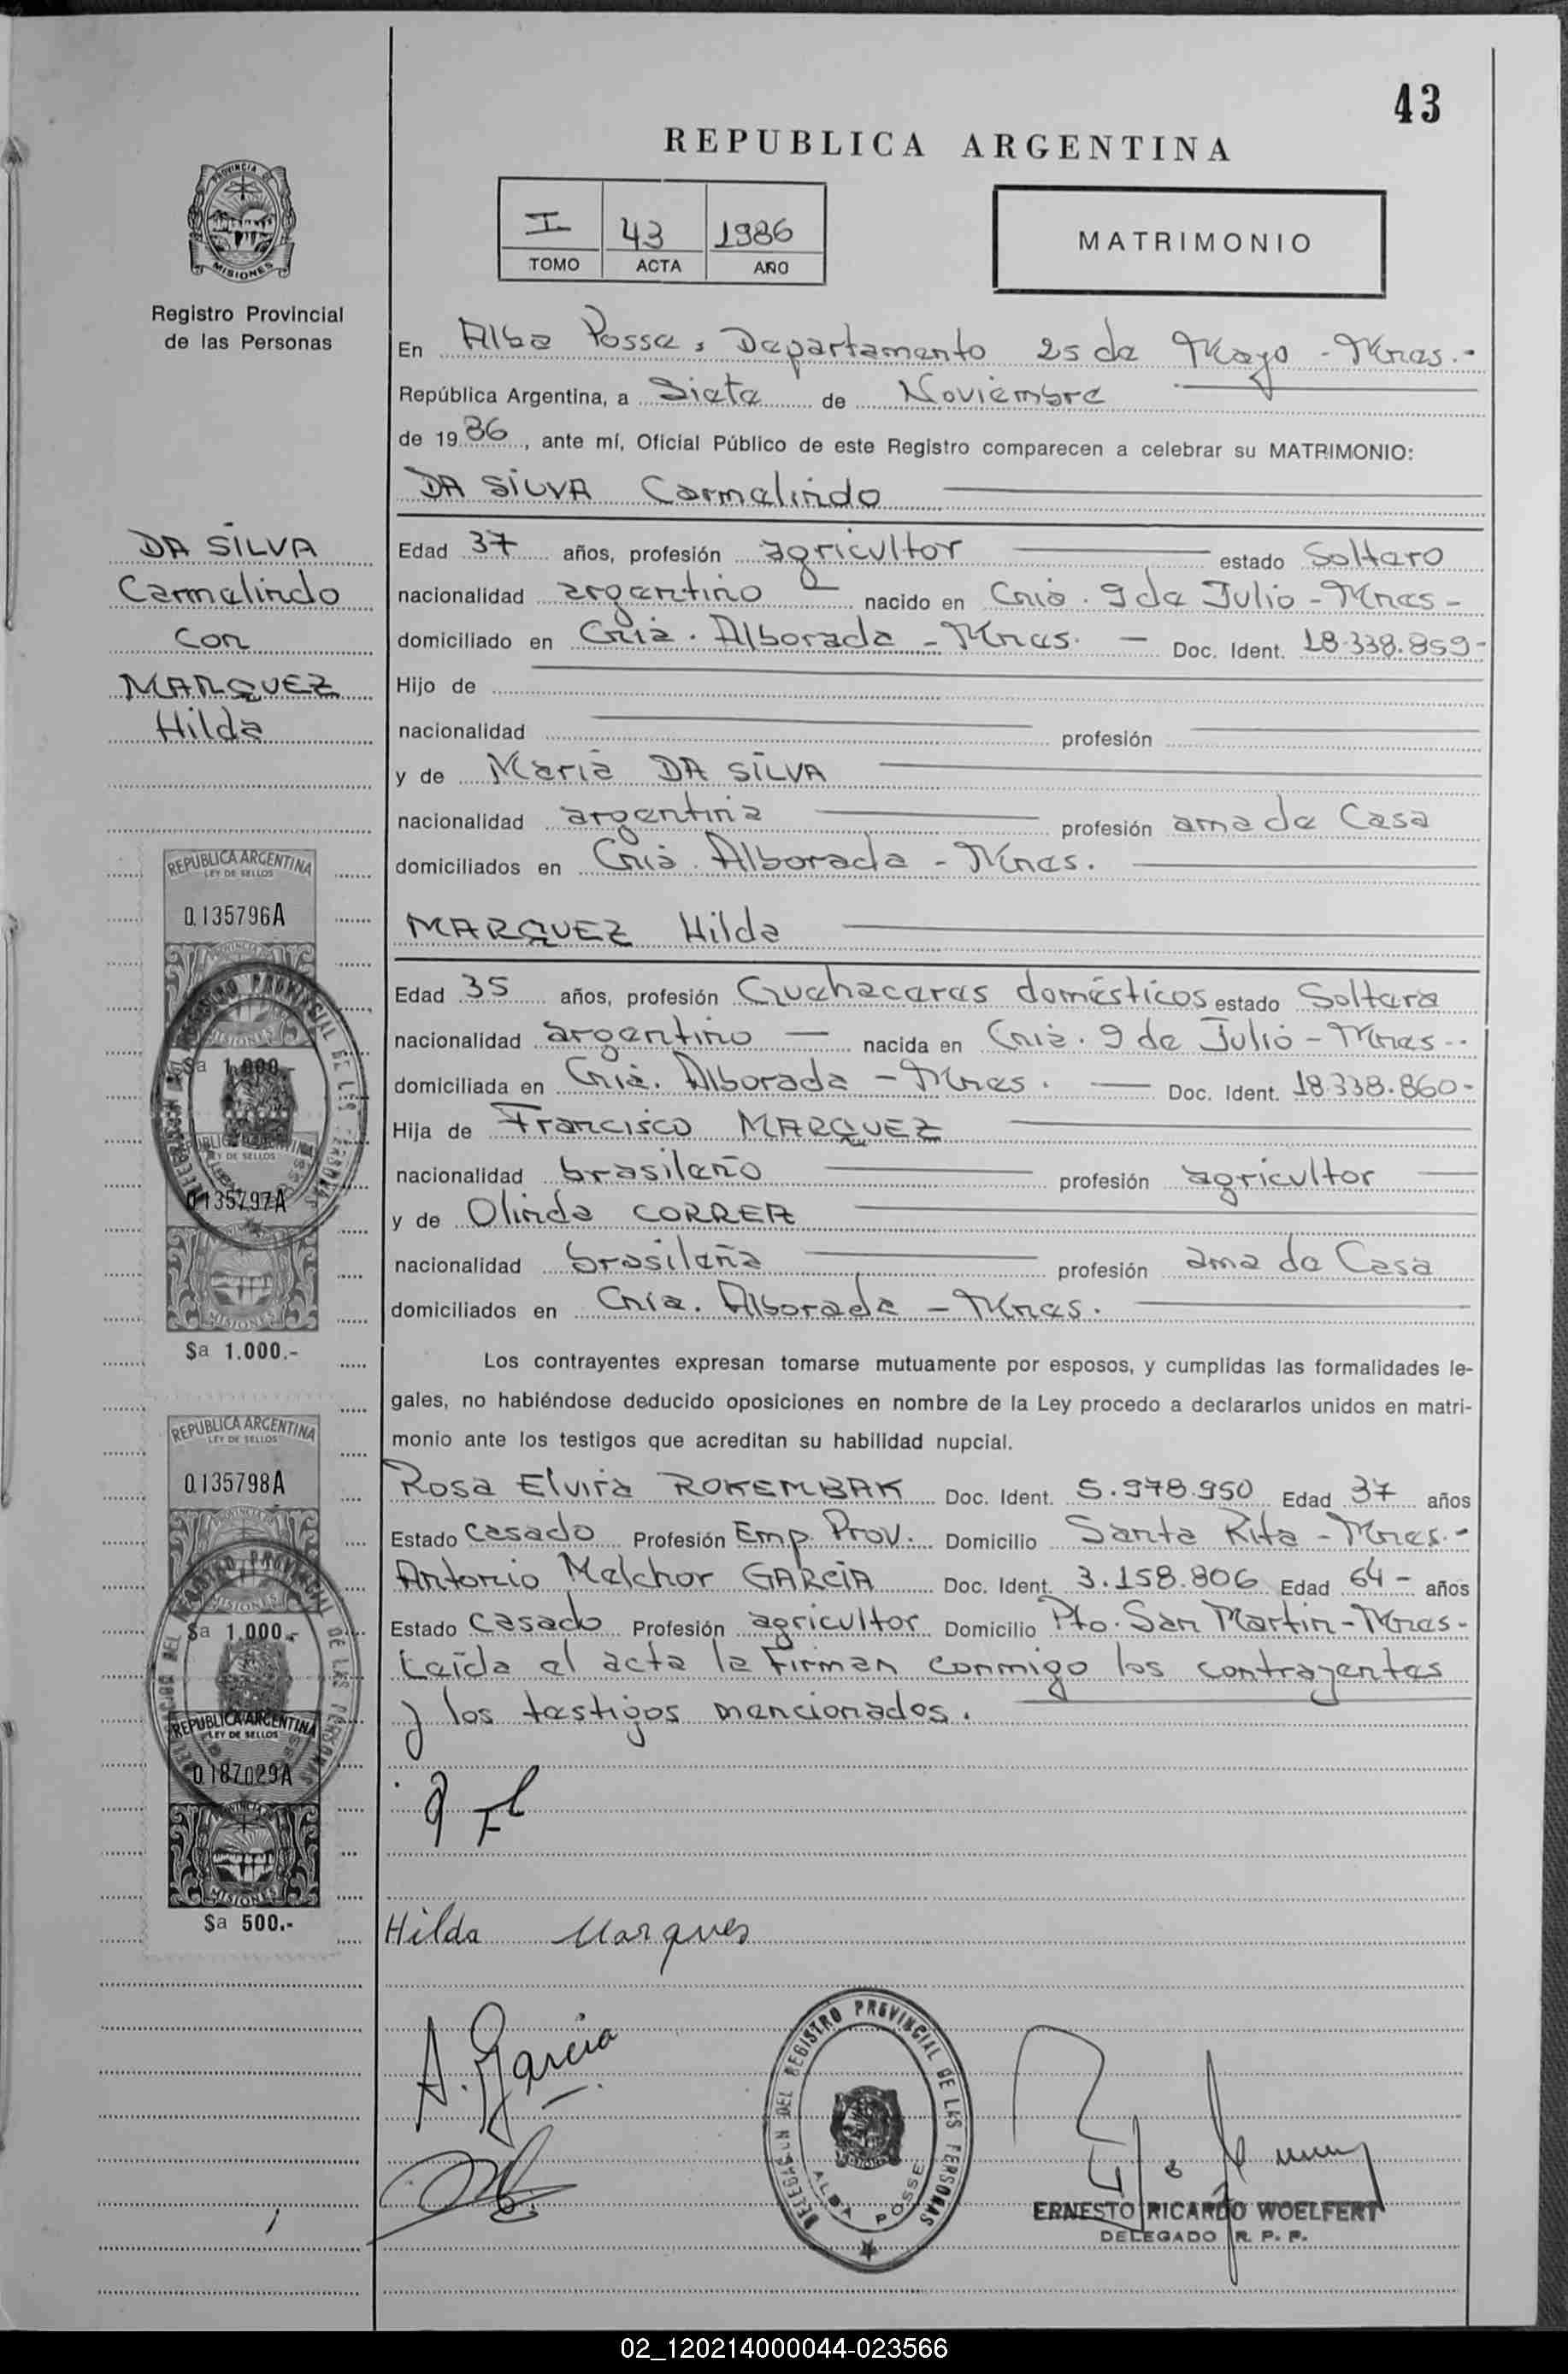 43
REPUBLICA ARGENTINA
I 43 1986
TOMO ACTA AÑO
MATRIMONIO
PROVINCIA DE
MISIONES
Registro Provincial
de las Personas
En Alba Posse, Departamento 25 de Mayo - Mnes.-
República Argentina, a Siete de Noviembre
de 1986, ante mí, Oficial Público de este Registro comparecen a celebrar su MATRIMONIO:
DA SILVA Carmelindo
DA SILVA
Carmelindo
con
MARQUEZ
Hilda
Edad 37 años, profesión agricultor estado Soltero
nacionalidad argentino nacido en Cnia. 9 de Julio - Mnes -
domiciliado en Cnia. Alborada - Mnes. - Doc. Ident. 18.338.859-
Hijo de
nacionalidad profesión
y de Maria DA SILVA
nacionalidad argentina profesión ama de Casa
domiciliados en Cnia. Alborada - Mnes.
MARQUEZ Hilda
Edad 35 años, profesión Quehaceres domésticos estado Soltera
nacionalidad argentino - nacida en Cnia. 9 de Julio - Mnes -.
domiciliada en Cnia. Alborada - Mnes. - Doc. Ident. 18.338.860-
Hija de Francisco MARQUEZ
nacionalidad brasileño profesión agricultor
y de Olinda CORREA
nacionalidad brasileña profesión ama de Casa
domiciliados en Cnia. Alborada - Mnes.
Los contrayentes expresan tomarse mutuamente por esposos, y cumplidas las formalidades le-
gales, no habiéndose deducido oposiciones en nombre de la Ley procedo a declararlos unidos en matri-
monio ante los testigos que acreditan su habilidad nupcial.
Rosa Elvira ROKEMBAK Doc. Ident. 5.978.950 Edad 37 años
Estado Casado Profesión Emp. Prov. Domicilio Santa Rita - Mnes.-
Antonio Melchor GARCIA Doc. Ident. 3.158.806 Edad 64 - años
Estado Casado Profesión agricultor Domicilio Pto. San Martin - Mnes -
Leída el acta la Firman conmigo los contrayentes
y los testigos mencionados.
Hilda Marques
A. Garcia
REPUBLICA ARGENTINA
LEY DE SELLOS
0.135796A
MISIONES
$a 1.000.-
REPUBLICA ARGENTINA
LEY DE SELLOS
0135797A
MISIONES
$a 1.000.-
REPUBLICA ARGENTINA
LEY DE SELLOS
0.135798A
MISIONES
$a 1.000.-
REPUBLICA ARGENTINA
LEY DE SELLOS
0.187029A
MISIONES
$a 500.-
DELEGACION DEL REGISTRO PROVINCIAL DE LAS PERSONAS
ALBA POSSE
ERNESTO RICARDO WOELFERT
DELEGADO R. P. P.
02_120214000044-023566